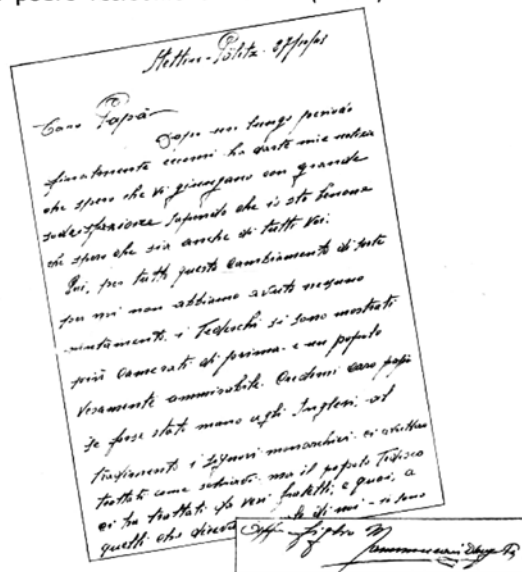 Stettin - Pölitz - 27/10/43
Caro Papà
Dopo un lungo periodo
finalmente eccomi ha darte mie notizie
che spero che vi giungano con grande
sodisfazione sapendo che io sto benone
che spero che sia anche di tutti voi.
Qui, per tutto questo cambiamento di
per noi non abbiamo avuto nessuno
mutamento, i Tedeschi si sono mostrati
più camerati di prima. e un popolo
veramente ammirabile. Credimi caro papà
se fosse stato mano agli Inglesi, al
tradimento i Signori monarchici. ci avrebbero
trattati come schiavi. ma il popolo Tedesco
ci ha trattati da veri fratelli, e guai, a
quelli che di noi - si sono
figlio